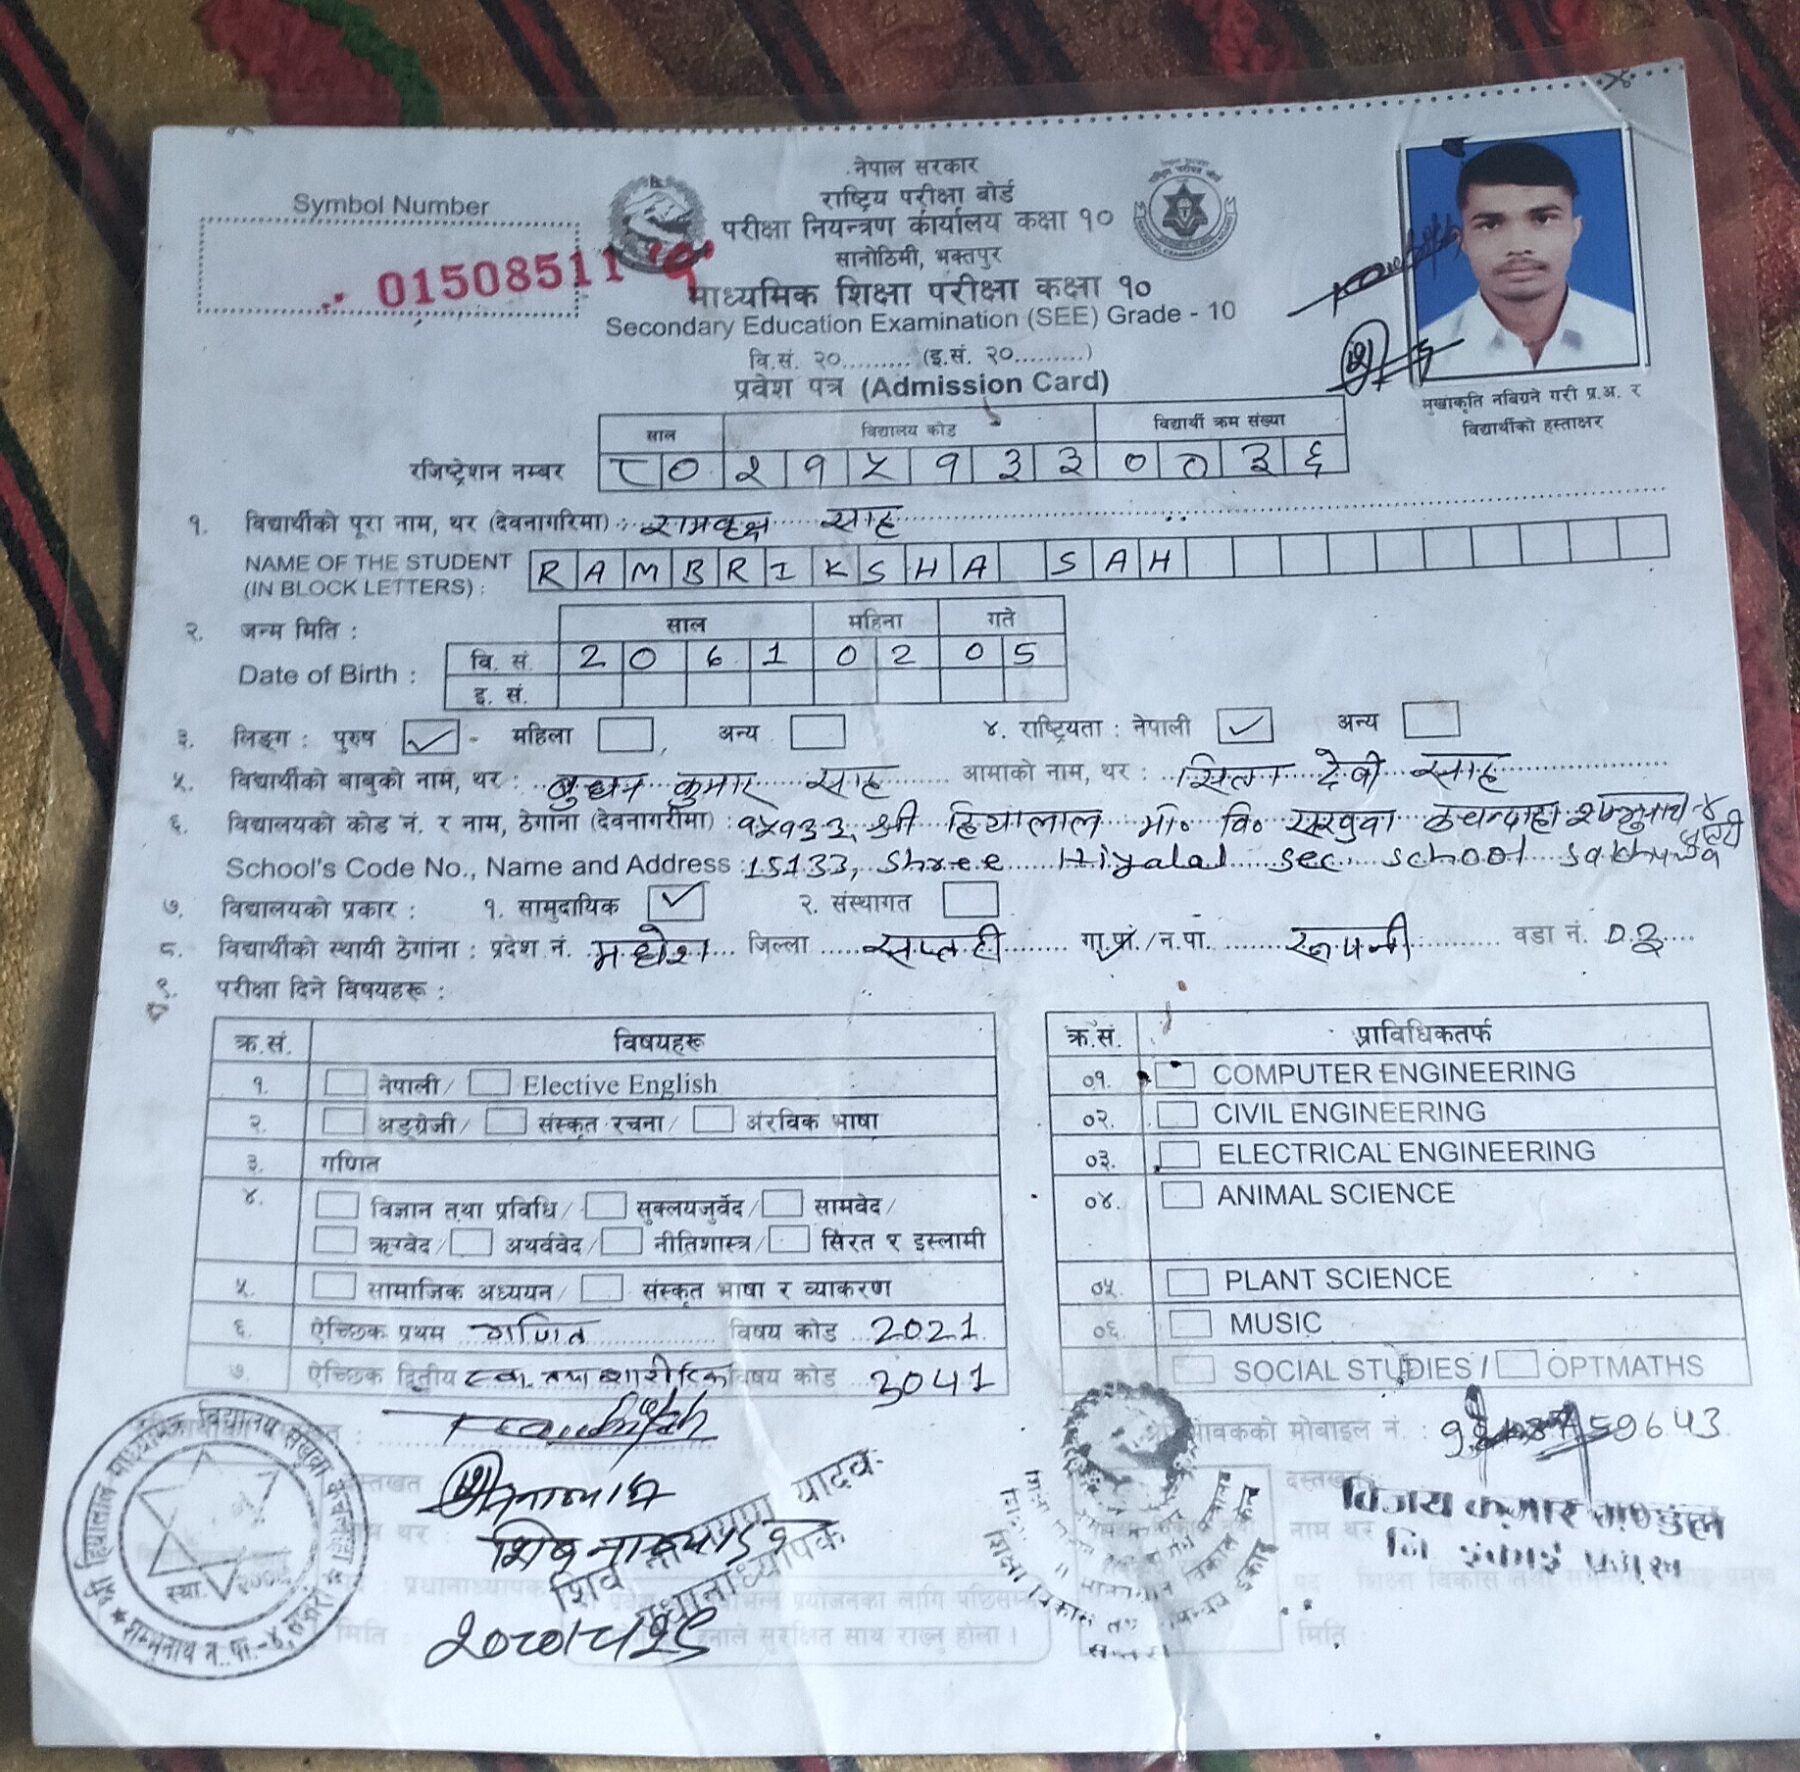 Symbol Number
01508511 'प'
नेपाल सरकार
राष्ट्रिय परीक्षा बोर्ड
परीक्षा नियन्त्रण कार्यालय कक्षा १०
सानोठिमी, भक्तपुर
माध्यमिक शिक्षा परीक्षा कक्षा १०
Secondary Education Examination (SEE) Grade - 10
वि.सं. २०......... (इ.सं. २०..........)
प्रवेश पत्र (Admission Card)
मुखाकृति नबिग्रने गरी प्र.अ. र
विद्यार्थीको हस्ताक्षर
साल विद्यालय कोड विद्यार्थी क्रम संख्या
रजिष्ट्रेशन नम्बर ८० २१५१३३ ००३६
१. विद्यार्थीको पूरा नाम, थर (देवनागरिमा) : रामवृक्ष साह
NAME OF THE STUDENT RAMBRIKSHA SAH
(IN BLOCK LETTERS) :
२. जन्म मिति : साल महिना गते
Date of Birth : वि. सं. 2061 02 05
इ. सं.
३. लिङ्ग : पुरुष ✓ महिला , अन्य ४. राष्ट्रियता : नेपाली ✓ अन्य
५. विद्यार्थीको बाबुको नाम, थर : बुधन कुमार साह आमाको नाम, थर : सिता देवी साह
६. विद्यालयको कोड नं. र नाम, ठेगाना (देवनागरीमा) : १५१३३, श्री हियालाल मा० वि० सखुवा
School's Code No., Name and Address : 15133, Shree Hiyalal sec. school sakhuwa
७. विद्यालयको प्रकार : १. सामुदायिक ✓ २. संस्थागत
८. विद्यार्थीको स्थायी ठेगाना : प्रदेश नं. मधेश जिल्ला सप्तरी गा.पा./न.पा. रुपनी वडा नं. ०३
९. परीक्षा दिने विषयहरू :
क्र.सं. विषयहरू
१. नेपाली/ Elective English
२. अङ्ग्रेजी/ संस्कृत रचना/ अरविक भाषा
३. गणित
४. विज्ञान तथा प्रविधि/ सुक्लयजुर्वेद/ सामवेद/
ऋग्वेद/ अथर्ववेद/ नीतिशास्त्र/ सिरत ए इस्लामी
५. सामाजिक अध्ययन/ संस्कृत भाषा र व्याकरण
६. ऐच्छिक प्रथम गणित विषय कोड 2021
७. ऐच्छिक द्वितीय स्वा. तथा शारीरिक विषय कोड 3041
क्र.सं. प्राविधिकतर्फ
०१. COMPUTER ENGINEERING
०२. CIVIL ENGINEERING
०३. ELECTRICAL ENGINEERING
०४. ANIMAL SCIENCE
०५. PLANT SCIENCE
०६. MUSIC
SOCIAL STUDIES / OPTMATHS
मोबाइल नं. :
दस्तखत
नाम थर
मिति
शिव नारायण यादव
प्रधानाध्यापक
श्री हियालाल माध्यमिक विद्यालय सखुवा
स्था.
शम्भुनाथ न.पा.-४, सप्तरी
विजय कुमार मण्डल